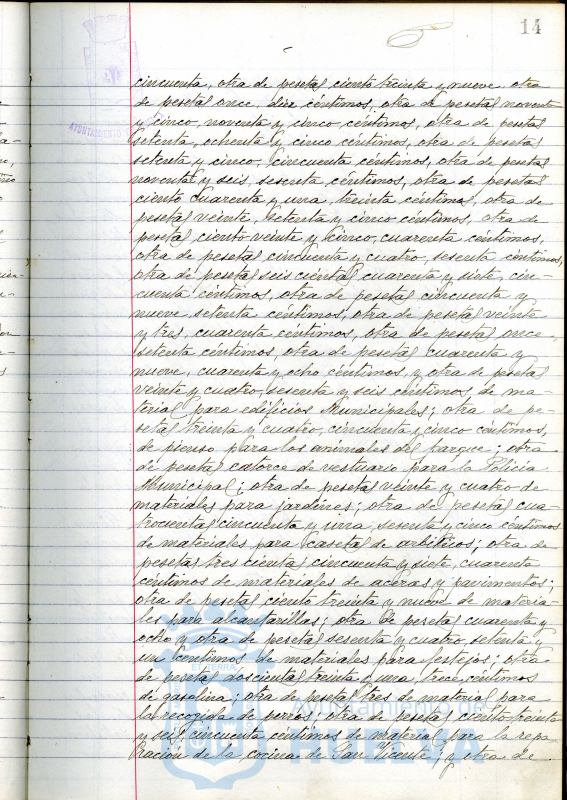 14
cincuenta, otra de pesetas ciento treinta y nueve otra
de pesetas once, diez céntimos, otra de pesetas noventa
y cinco, noventa y cinco céntimos, otra de pesetas
setenta, ochenta y cinco céntimos, otra de pesetas
setenta y cinco, cincuenta céntimos, otra de pesetas
noventa y seis, sesenta céntimos, otra de pesetas
ciento cuarenta y una, treinta céntimos, otra de
pesetas veinte, setenta y cinco céntimos, otra de
pesetas ciento veinte y cinco, cuarenta céntimos,
otra de pesetas cincuenta y cuatro, sesenta céntimos,
otra de pesetas seis cientas cuarenta y siete, cin-
cuenta céntimos, otra de pesetas cincuenta y
nueve, setenta céntimos, otra de pesetas veinte
y tres, cuarenta céntimos, otra de pesetas once,
setenta céntimos, otra de pesetas cuarenta y
nueve, cuarenta y ocho céntimos, y otra de pesetas
veinte y cuatro, sesenta y seis céntimos de ma-
terial para edificios Municipales; otra de pe-
setas treinta y cuatro, cincuenta y cinco céntimos,
de pienso para los animales del parque; otra
de pesetas catorce de vestuario para la Policia
Municipal; otra de pesetas veinte y cuatro de
materiales para jardines; otra de pesetas cua-
trocientas cincuenta y una, sesenta y cinco céntimos
de materiales para casetas de arbitrios; otra de
pesetas tres cientas cincuenta y siete, cuarenta
céntimos de materiales de aceras y pavimentos;
otra de pesetas ciento treinta y nueve de materia-
les para alcantarillas; otra de pesetas cuarenta y
ocho y otra de pesetas sesenta y cuatro, setenta y
un céntimos de materiales para festejos; otra
de pesetas doscientas treinta y una, trece céntimos
de gasolina; otra de pesetas tres de material para
la recogida de perros; otra de pesetas ciento treinta
y seis, cincuenta céntimos de material para la repa
ración de la cocina de San Vicente; y otra de
AYUNTAMIENTO
Ayuntamiento de
HUELVA